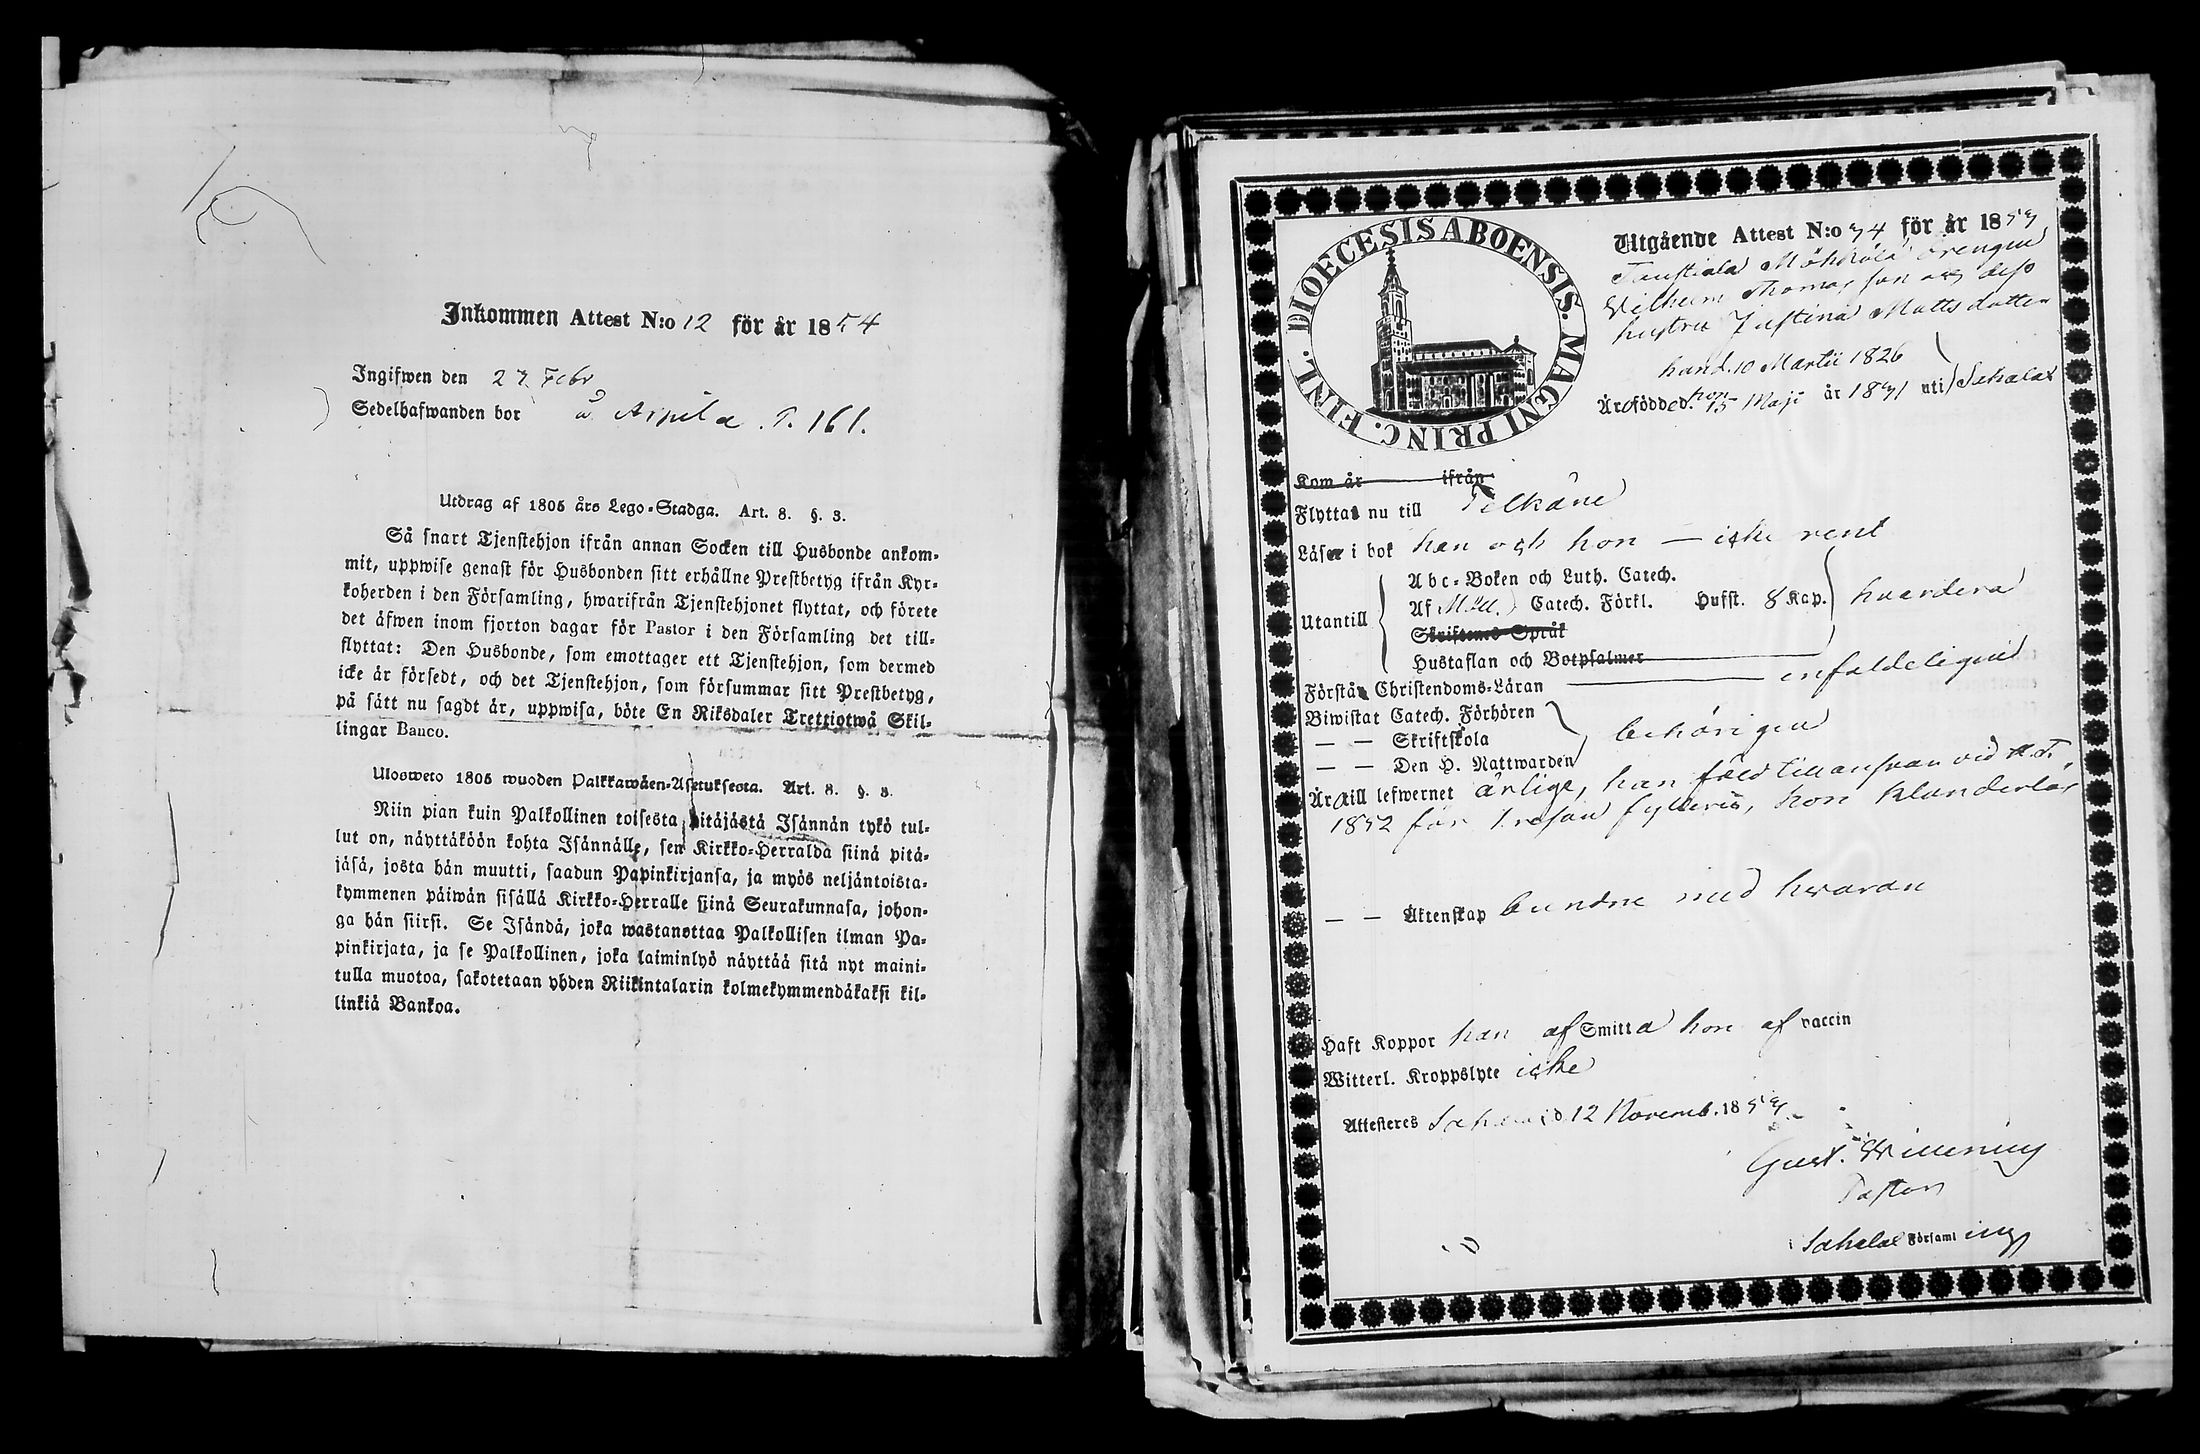 Inkommen Attest N:o 12 för år 1854
Ingifwen den 27 Febr
Sedelhafwanden bor å Arpila . P. 161.
Utdrag af 1805 års Lego-Stadga. Art. 8. §. 3.
Så snart Tjenstehjon ifrån annan Socken till Husbonde ankom-
mit, uppwise genast för Husbonden sitt erhållne Prestbetyg ifrån Kyr-
koherden i den Församling, hwarifrån Tjenstehjonet flyttat, och förete
det äfwen inom fjorton dagar för Pastor i den Församling det till-
flyttat: Den Husbonde, som emottager ett Tjenstehjon, som dermed
icke är försedt, och det Tjenstehjon, som försummar sitt Prestbetyg,
på sätt nu sagdt är, uppwisa, böte En Riksdaler Trettiotwå Skil-
lingar Banco.
Ulosweto 1805 wuoden Palkkawäen-Asetuksesta. Art. 8. §. 3.
Niin pian kuin Palkollinen toisesta pitäjästä Isännän tykö tul-
lut on, näyttäköön kohta Isännälle, sen Kirkko-Herralda siinä pitä-
jäsä, josta hän muutti, saadun Papinkirjansa, ja myös neljäntoista-
kymmenen päiwän sisällä Kirkko-Herralle siinä Seurakunnasa, johon-
ga hän siirsi. Se Isändä, joka wastanottaa Palkollisen ilman Pa-
pinkirjata, ja se Palkollinen, joka laiminlyö näyttää sitä nyt maini-
tulla muotoa, sakotetaan yhden Riikintalarin kolmekymmendäkaksi kil-
linkiä Bankoa.
DIOECESIS ABOENSIS. MAGNI PRINC. FINL.
Utgående Attest N:o 74 för år 1853
Mökkölä Drengen
Wilhelm Thomas son och dess
hustru Justina Matts dotter
han d. 10 Martii 1826
Äro födde d. hon 15 Maji år 1831 uti Sahalax
Kom år ifrån
Flyttas nu till Pelkäne
Läser i bok han och hon — icke rent
Abc-Boken och Luth. Catech.
Utantill Af Möll. Catech. Förkl. Husst. 8 Kap. hvardera
Skriftenes Språk
Hustaflan och Botpsalmer
Förstå Christendoms-Läran enfaldeligen
Biwistat Catech. Förhören
— — Skriftskola behörigen
— — Den H. Nattwarden
Äro till lefwernet ärlige, han fäld till ansvar vid H.T.
1852 för 1 resan fylleri, hon klanderlös
— — Äktenskap bundne med hvaran
Haft Koppor han af Smitta hon af vaccin
Witterl. Kroppslyte icke
Attesteres Sahalax d. 12 Novemb. 1853
Gust.
Pastor
i Sahalax Församling